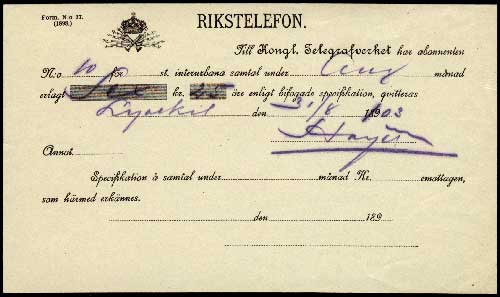 Form. N:o 77.
(1898.)
RIKSTELEFON.
Till Kongl. Telegrafverket har abonnenten
N:o 10 för st. interurbana samtal under Aug månad
erlagt Sex kr. 25 öre enligt bifogade specifikation, qvitteras
Lysekil den 31/8 1903
Annat
Specifikation å samtal under månad Nr. emottagen,
som härmed erkännes.
den 189